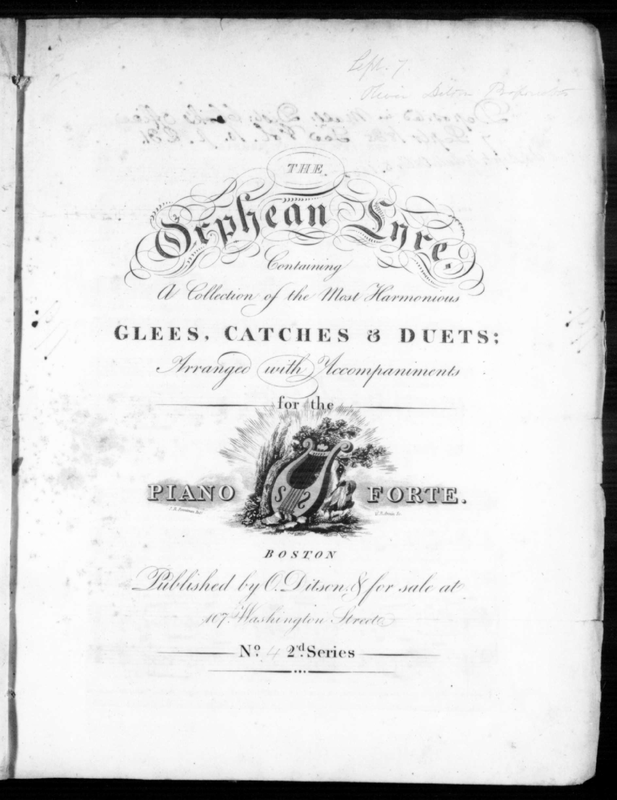 Sept. 7.
Oliver Ditson Proprietor
THE
Orphean Lyre,
Containing
A Collection of the Most Harmonious
GLEES, CATCHES & DUETS;
Arranged with Accompaniments
for the
PIANO FORTE.
BOSTON
Published by O. Ditson, & for sale at
107 Washington Street
No. 4 2nd. Series